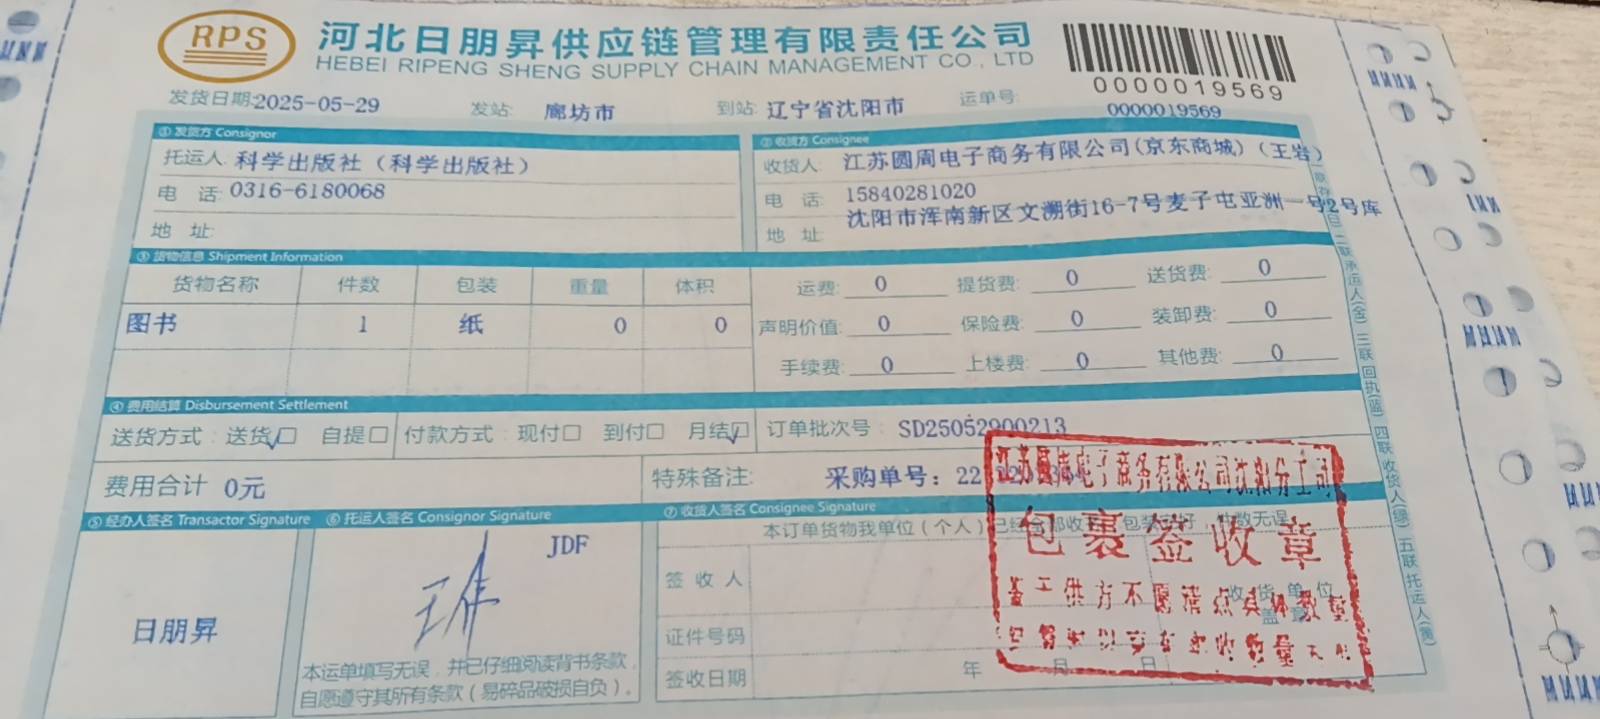 RPS
河北日朋昇供应链管理有限责任公司
HEBEI RIPENG SHENG SUPPLY CHAIN MANAGEMENT CO., LTD
0000019569
发货日期:2025-05-29 发站: 廊坊市 到站: 辽宁省沈阳市 运单号: 0000019569
① 发货方 Consignor
托运人: 科学出版社（科学出版社）
电 话: 0316-6180068
地 址:
② 收货方 Consignee
收货人: 江苏圆周电子商务有限公司(京东商城)（王岩）
电 话: 15840281020
地 址: 沈阳市浑南新区文溯街16-7号麦子屯亚洲一号2号库
③ 货物信息 Shipment Information
货物名称 件数 包装 重量 体积
图书 1 纸 0 0
运费: 0 提货费: 0 送货费: 0
声明价值: 0 保险费: 0 装卸费: 0
手续费: 0 上楼费: 0 其他费: 0
④ 费用结算 Disbursement Settlement
送货方式: 送货☑ 自提□ 付款方式: 现付□ 到付□ 月结☑ 订单批次号: SD25052900213
费用合计 0元 特殊备注: 采购单号:
⑤ 经办人签名 Transactor Signature
日朋昇
⑥ 托运人签名 Consignor Signature
JDF
本运单填写无误，并已仔细阅读背书条款，
自愿遵守其所有条款（易碎品破损自负）。
⑦ 收货人签名 Consignee Signature
本订单货物我单位（个人）已经全部收 包装 好，件数无误
签 收 人
收 货 单 位
盖 章
证件号码
签收日期 年 月 日
包裹签收章
二联承运人(金) 三联回执(蓝) 四联收货人(绿) 五联托运人(黄)